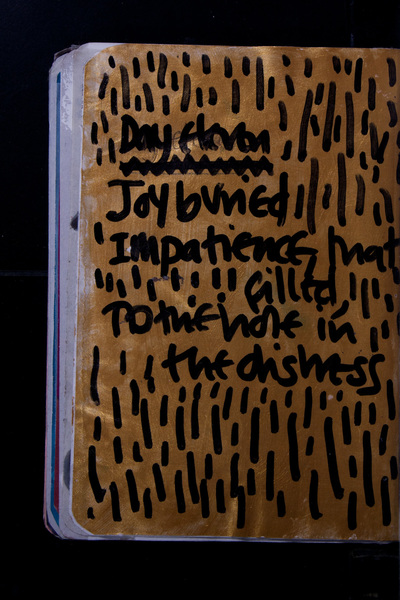 Day Eleven
Joy buried
Impatience, that
filled
To the hole in
the distress